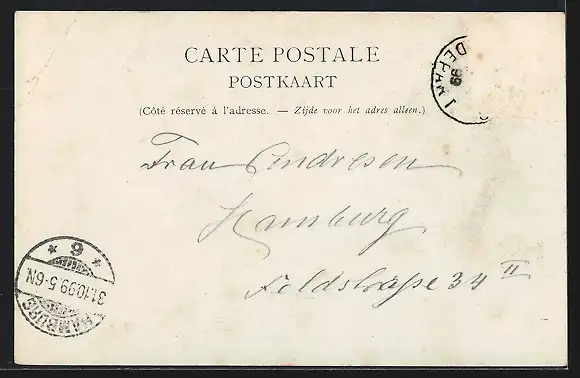 CARTE POSTALE
POSTKAART
(Côté réservé à l'adresse. — Zijde voor het adres alleen.)
DEPART
99
Frau Andresen
Hamburg
Feldstraße 34 II
* 6 *
31.10.99.5-6N.
HAMBURG